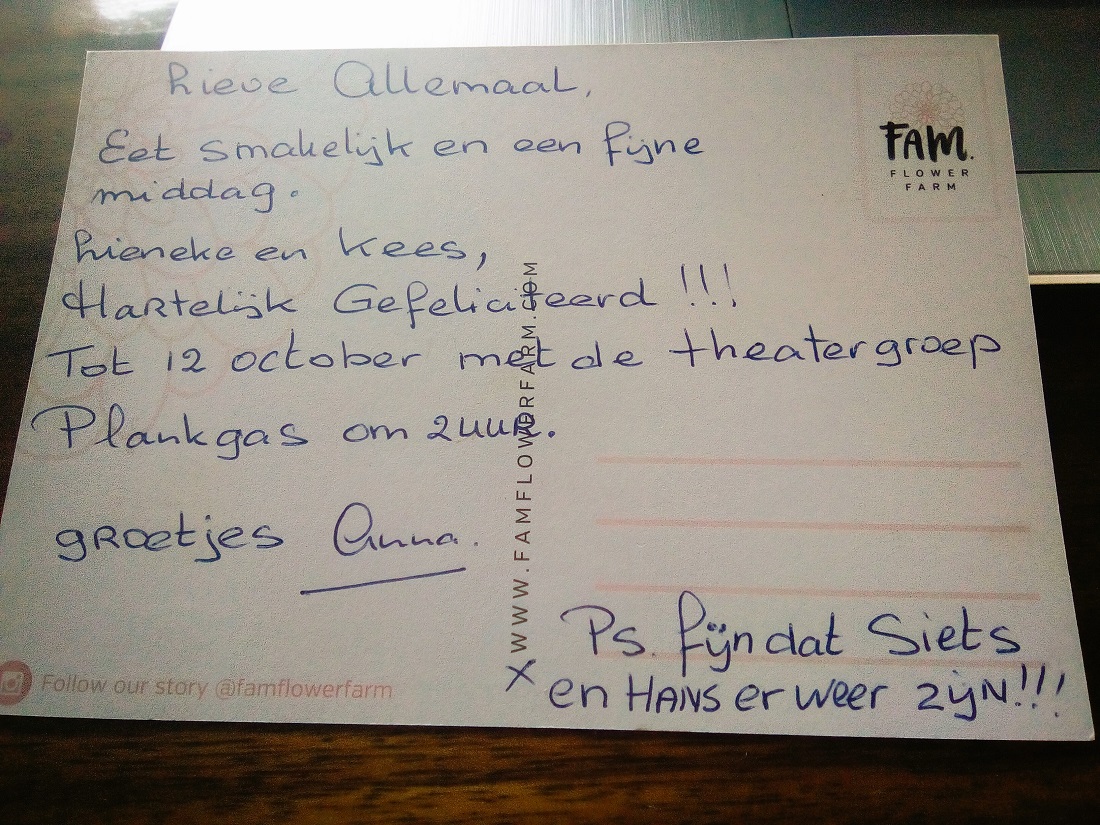 Lieve Allemaal,
Eet smakelijk en een fijne
middag.
Lieneke en Kees,
Hartelijk Gefeliciteerd !!!
Tot 12 october met de theatergroep
Plankgas om 2 uur.
groetjes Anna.
Ps. fijn dat Siets
x en HANS er weer zijn!!!
FAM.
FLOWER
FARM
WWW.FAMFLOWERFARM.COM
Follow our story @famflowerfarm